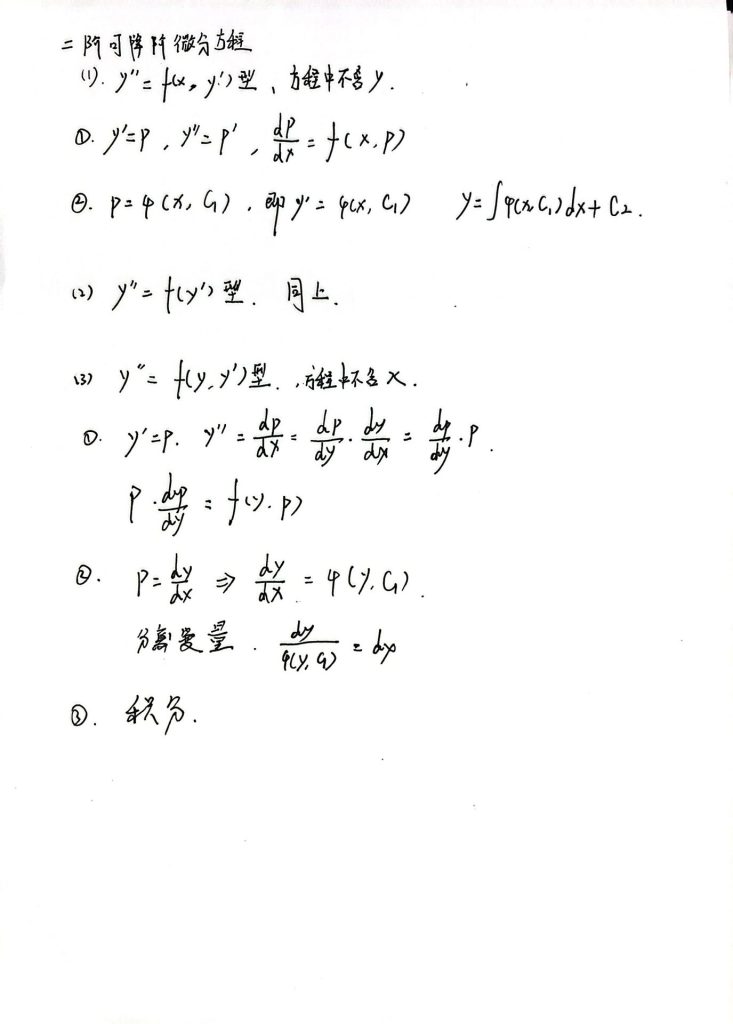 二阶可降阶微分方程
(1). y'' = f(x, y')型、方程中不含y.
①. y'=P, y''=P', dP/dx = f(x,P)
②. P=φ(x,C₁), 即y'=φ(x,C₁) y=∫φ(x,C₁)dx+C₂.
(2) y''=f(y')型. 同上.
(3) y''= f(y,y')型., 方程中不含x.
①. y'=P. y''=dp/dx=dP/dy·dy/dx=dp/dy·P.
P·dp/dy=f(y.p)
②. P=dy/dx ⇒ dy/dx=φ(y,C₁).
分离变量. dy/φ(y,C₁)=dx
③. 积分.